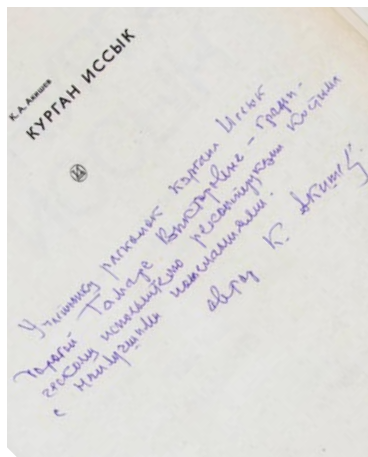 К. А. Акишев
КУРГАН ИССЫК
Участнику раскопок кургана Иссык
дорогой Тамаре Викторовне – графи-
ческому исполнителю реконструкции костюма
с наилучшими пожеланиями.
автор К. Акишев